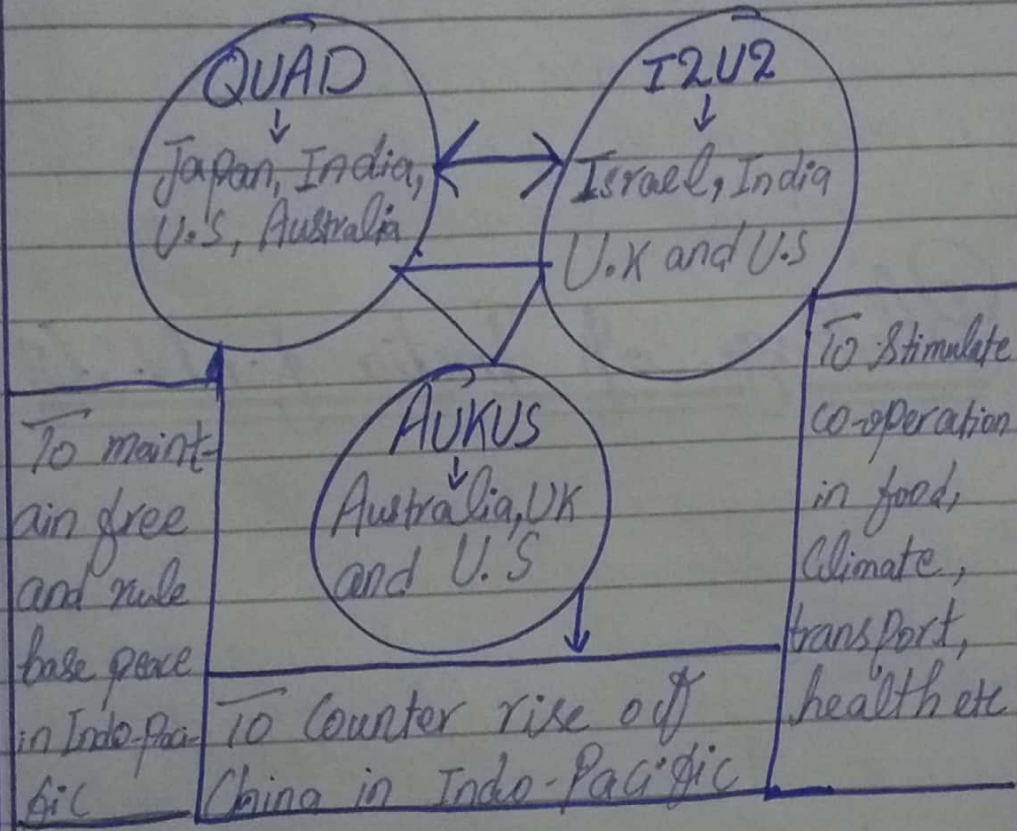 QUAD
Japan, India,
U.S, Australia
I2U2
Israel, India
U.K and U.S
AUKUS
Australia, UK
and U.S
To maint-
ain free
and rule
base peace
in Indo-Paci-
fic
To Counter rise off
China in Indo-Pacific
To Stimulate
co-operation
in food,
Climate,
transport,
health etc